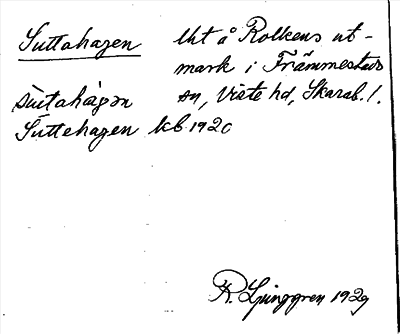 Suttahagen lht å Rolkens ut-
mark i Främmestads
sn, Viste hd, Skarab. l.
sùtahàgən
Suttehagen kb 1920
R. Ljunggren 1929